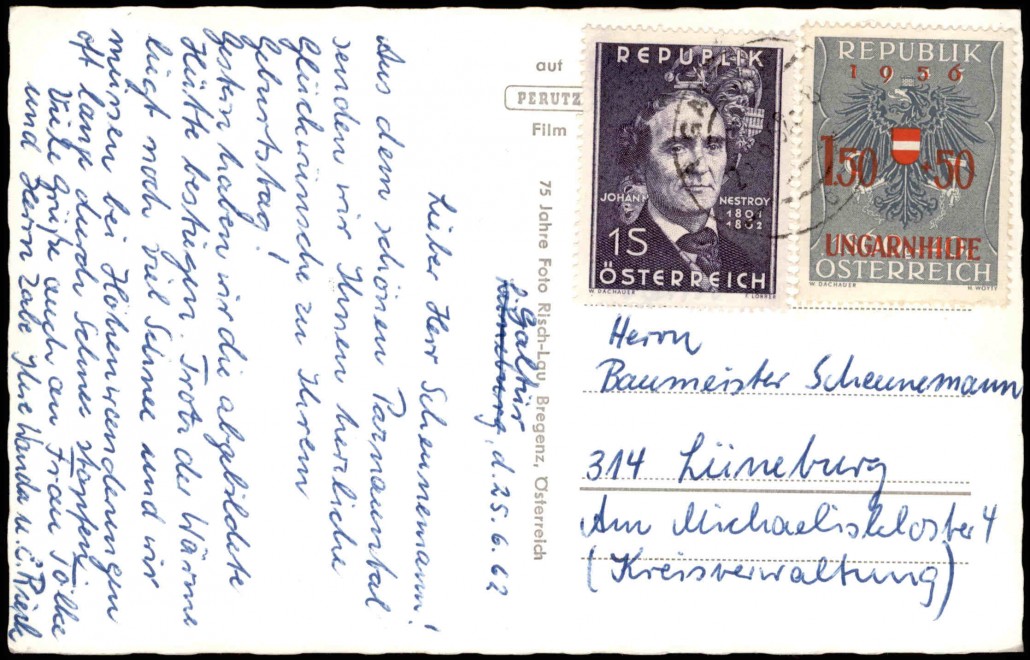 z. Z. Galtür
Lüneburg, d. 25.6.62
Lieber Herr Scheunemann!
Aus dem schönen Paznauntal
senden wir Ihnen herzliche
Glückwünsche zu Ihrem
Geburtstag!
Gestern haben wir die abgebildete
Hütte bestiegen. Trotz der Wärme
liegt noch viel Schnee und wir
müssen bei Höhenwanderungen
oft lange durch Schnee stapfen.
Viele Grüße auch an Frau Tölke
und Herrn Zabe Ihre Wanda u. E.
auf
PERUTZ
Film
75 Jahre Foto Risch-Lau, Bregenz, Österreich
REPUBLIK
JOHANN NESTROY
1801
1862
1S
ÖSTERREICH
W. DACHAUER
REPUBLIK
1956
1.50 +50
UNGARNHILFE
ÖSTERREICH
W. DACHAUER
Herrn
Baumeister Scheunemann
314 Lüneburg
Am Michaeliskloster 4
(Kreisverwaltung)